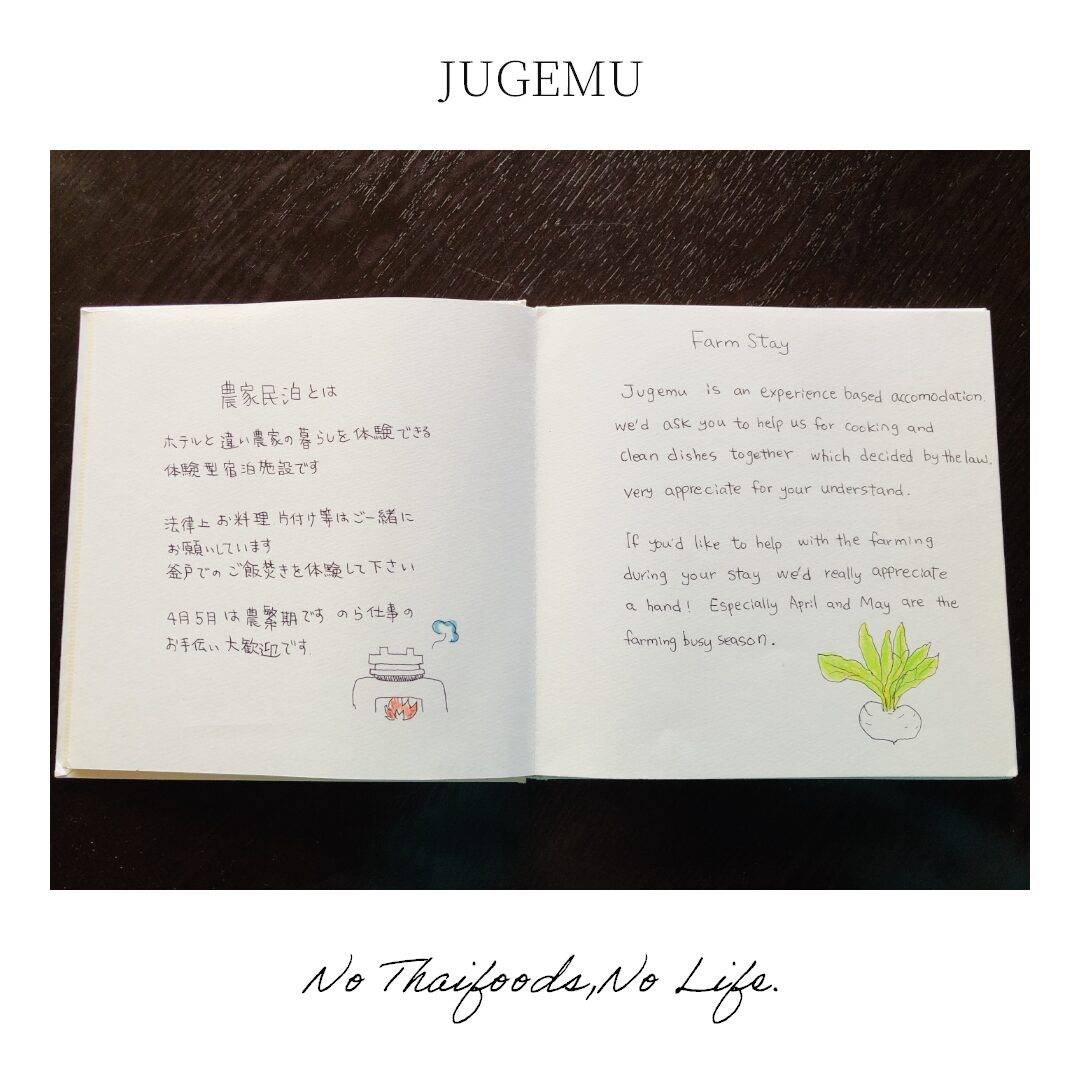 JUGEMU
農家民泊とは
ホテルと違い農家の暮らしを体験できる
体験型宿泊施設です
法律上お料理 片付け等はご一緒に
お願いしています
釜戸でのご飯焚きを体験して下さい
4月5月は農繁期です のら仕事の
お手伝い大歓迎です
Farm Stay
Jugemu is an experience based accomodation.
we'd ask you to help us for cooking and
clean dishes together which decided by the law.
very appreciate for your understand.
If you'd like to help with the farming
during your stay we'd really appreciate
a hand! Especially April and May are the
farming busy season.
No Thaifoods,No Life.